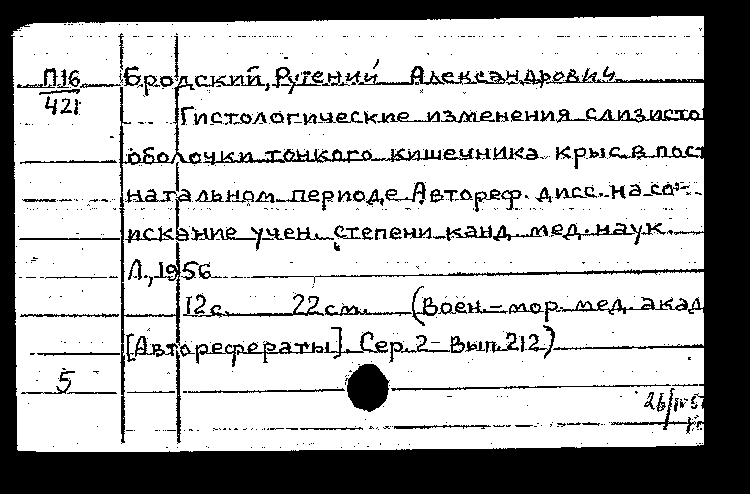 П16 Бродский, Рутений Александрович
421 Гистологические изменения слизисто
оболочки тонкого кишечника крыс в пост
натальном периоде Автореф. дисс. на со-
искание учен. степени канд. мед. наук.
Л., 1956
12 с. 22 см. (Воен.-мор. мед. акад.
[Авторефераты]. Сер. 2- Вып. 212)
5
26/IV 5